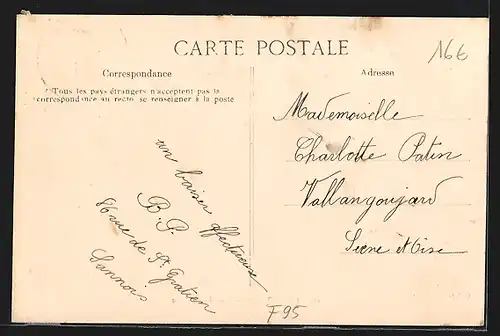 CARTE POSTALE
16€
Correspondance
Tous les pays étrangers n'acceptent pas la
correspondance au recto, se renseigner à la poste
un baiser affectueux
B. P.
86 rue de St Gratien
Sannois
Adresse
Mademoiselle
Charlotte Patin
Vallangoujard
Seine et Oise
F95